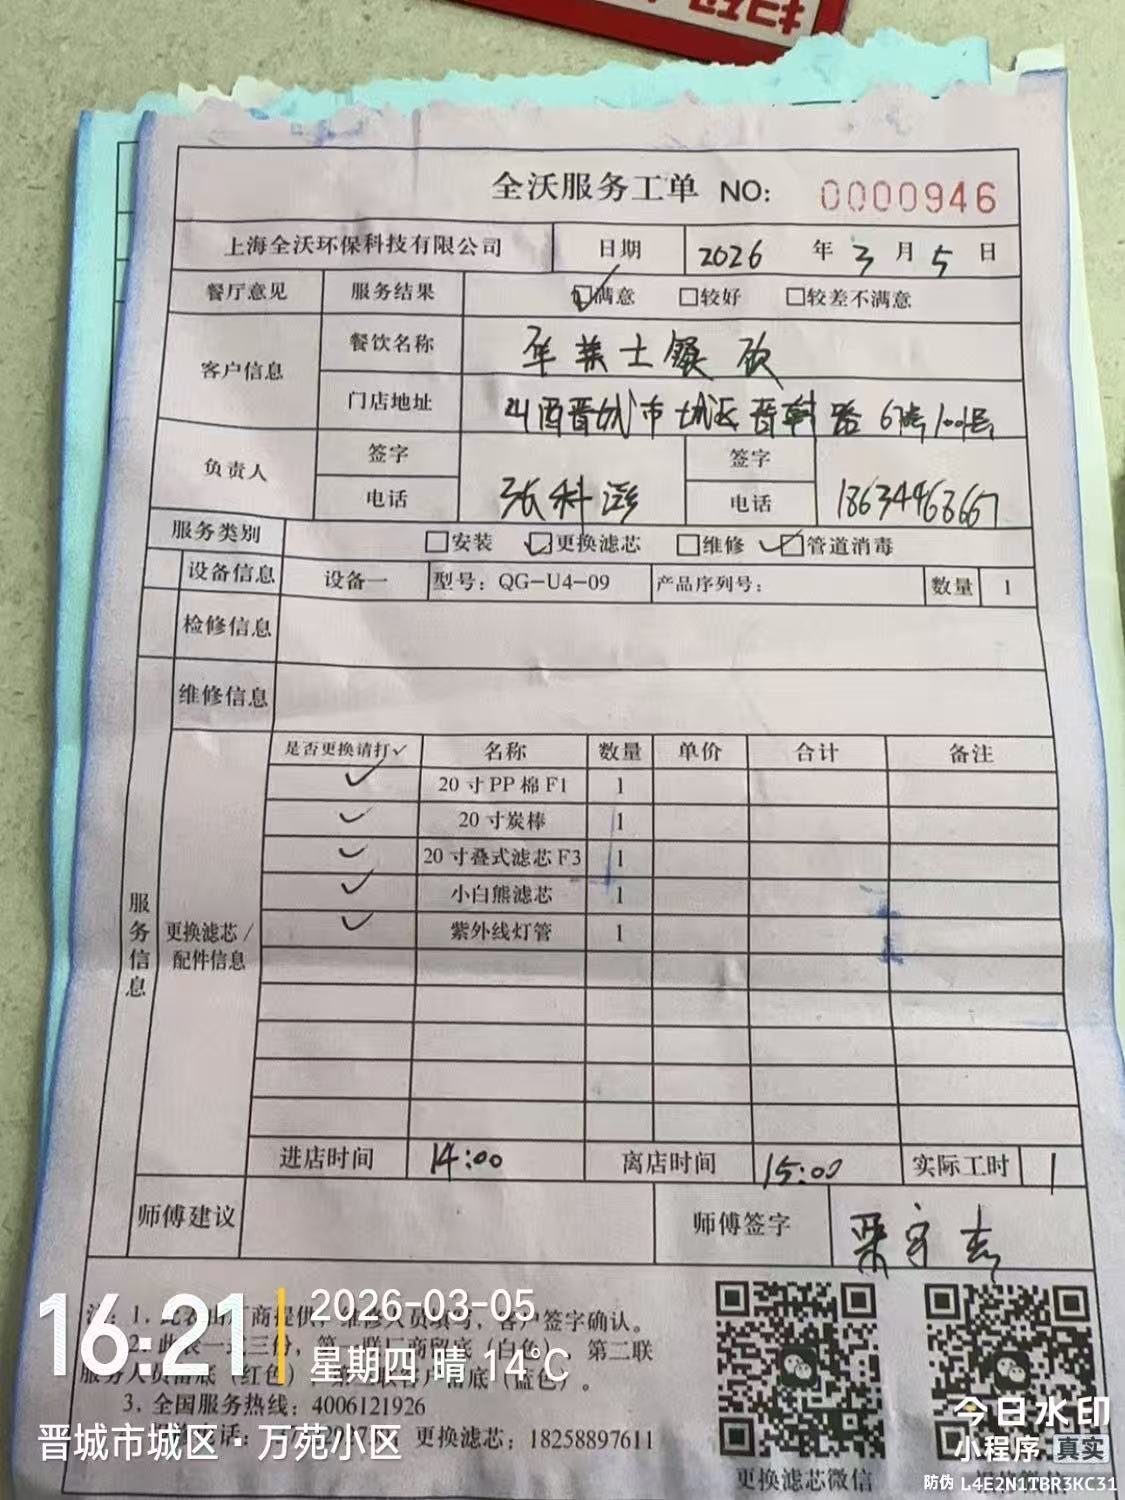 全沃服务工单 NO: 0000946
上海全沃环保科技有限公司 日期 2026 年 3 月 5 日
餐厅意见 服务结果 满意 较好 较差不满意
客户信息 餐饮名称 士 饮
门店地址 山西晋城市城区晋 路
负责人 签字 签字
电话 张科 电话
服务类别 安装 更换滤芯 维修 管道消毒
设备信息 设备一 型号：QG-U4-09 产品序列号： 数量 1
检修信息
维修信息
是否更换请打✓ 名称 数量 单价 合计 备注
✓ 20寸PP棉F1 1
✓ 20寸炭棒 1
✓ 20寸叠式滤芯F3 1
✓ 小白熊滤芯 1
✓ 紫外线灯管 1
服务信息
更换滤芯/
配件信息
进店时间 14:00 离店时间 15:00 实际工时 1
师傅建议 师傅签字
注：1. 此表由厂商提供，维修人员填写，客户签字确认。
2. 此表一式三份，第一联厂商留底（白色），第二联
服务人员留底（红色），客户留底（蓝色）。
3. 全国服务热线：4006121926
更换滤芯：18258897611
更换滤芯微信
16:21
2026-03-05
星期四 晴 14℃
晋城市城区·万苑小区
今日水印
小程序 真实
防伪 L4E2N1TBR3KC31